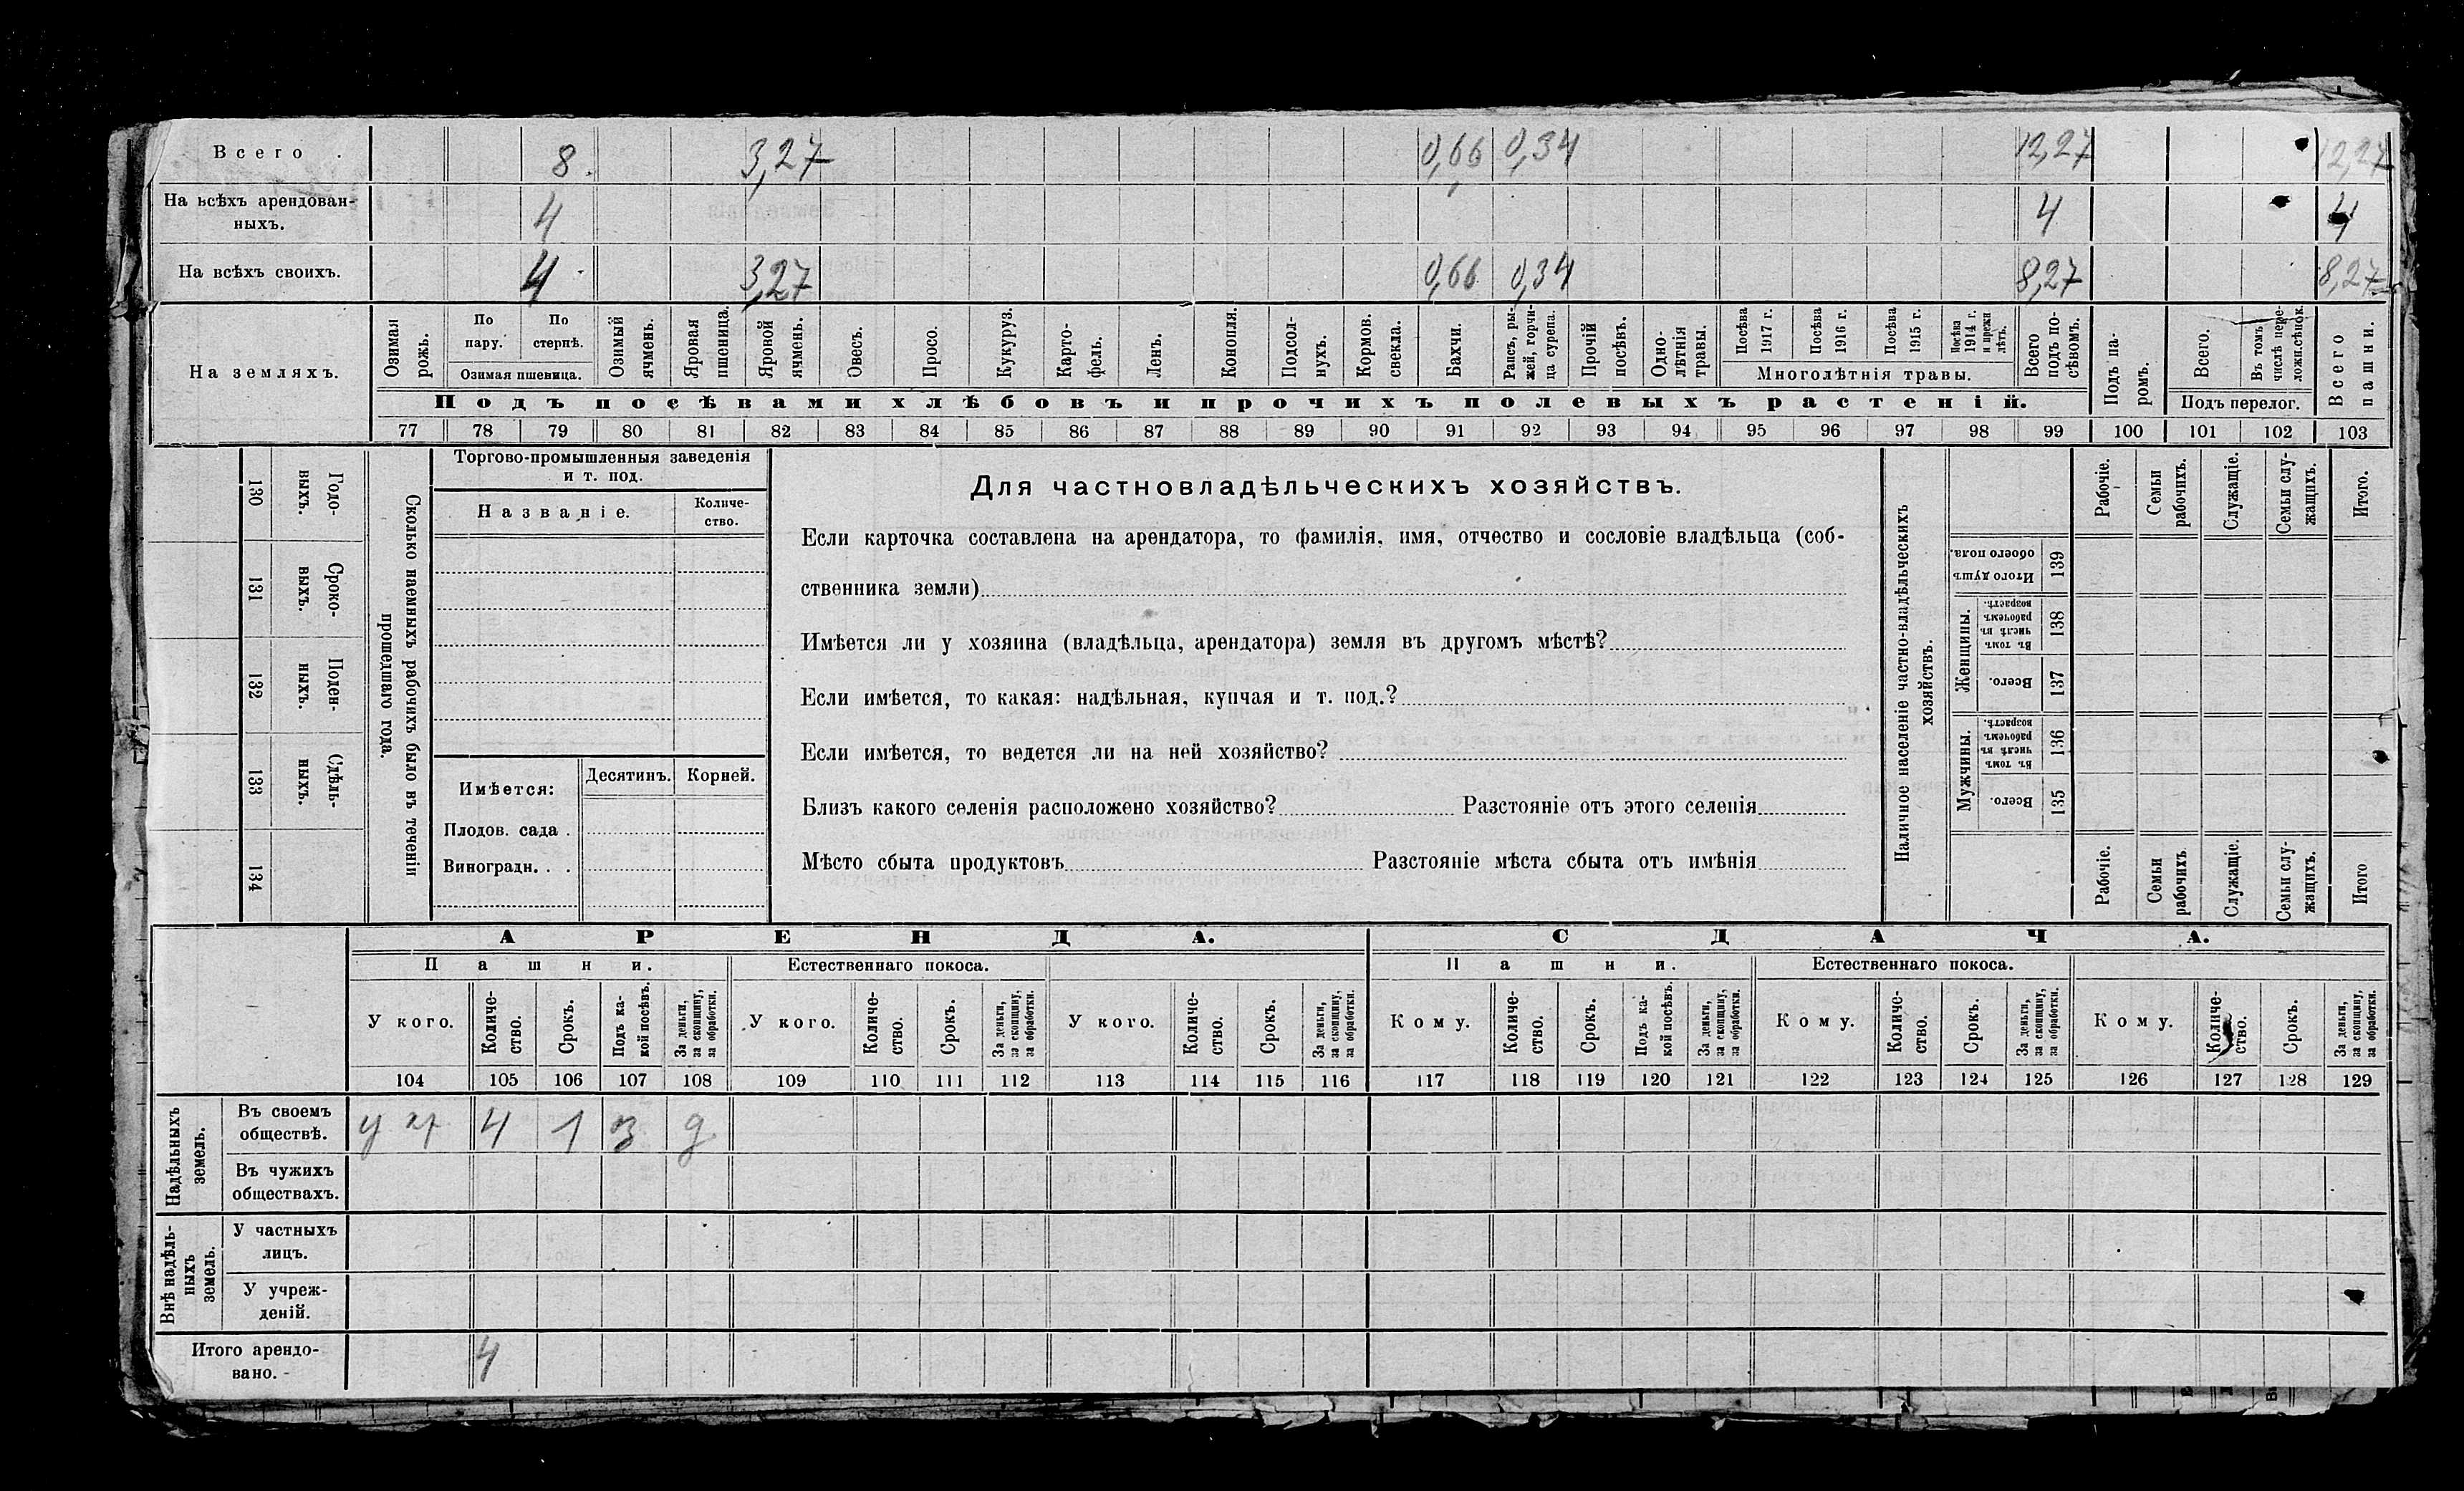 Всего . 8. 3,27 0,66 0,34 12,27 12,27
На всѣхъ арендован-
ныхъ. 4 4 4
На всѣхъ своихъ. 4 3,27 0,66 0,34 8,27 8,27
На земляхъ.
Озимая рожь.
По пару.
По стернѣ.
Озимая пшеница.
Озимый ячмень.
Яровая пшеница.
Яровой ячмень.
Овесъ.
Просо.
Кукуруз.
Карто-
фель.
Ленъ.
Конопля.
Подсол-
нухъ.
Кормов. свекла.
Бахчи.
Рапсъ, ры-
жей, горчи-
ца сурепа.
Прочій посѣвъ.
Одно-
лѣтнія травы.
Посѣва 1917 г.
Посѣва 1916 г.
Посѣва 1915 г.
Посѣва 1914 г. и прежн лѣтъ.
Многолѣтнія травы.
Всего подъ по-
сѣвомъ.
Подъ посѣвами хлѣбовъ и прочихъ полевыхъ растеній.
Подъ па-
ромъ.
Всего.
Въ томъ числѣ пере-
ложн.сѣнок.
Подъ перелог.
Всего пашни.
77 78 79 80 81 82 83 84 85 86 87 88 89 90 91 92 93 94 95 96 97 98 99 100 101 102 103
130 Годо-
ныхъ.
131 Сроко-
выхъ.
132 Поден-
ныхъ.
133 Сдѣль-
ныхъ.
134
Сколько наемныхъ рабочихъ было въ теченіи
прошедшаго года.
Торгово-промышленныя заведенія
и т. под.
Названіе.
Количе-
ство.
Имѣется: Десятинъ. Корней.
Плодов. сада .
Виноградн. . .
Для частновладѣльческихъ хозяйствъ.
Если карточка составлена на арендатора, то фамилія, имя, отчество и сословіе владѣльца (соб-
ственника земли)
Имѣется ли у хозяина (владѣльца, арендатора) земля въ другомъ мѣстѣ?
Если имѣется, то какая: надѣльная, купчая и т. под.?
Если имѣется, то ведется ли на ней хозяйство?
Близъ какого селенія расположено хозяйство? Разстояніе отъ этого селенія
Мѣсто сбыта продуктовъ Разстояніе мѣста сбыта отъ имѣнія
Наличное населеніе частно-владѣльческихъ
хозяйствъ.
Рабочіе.
Семьи рабочихъ.
Служащіе.
Семьи слу-
жащихъ.
Итого.
Итого душъ обоего пола. 139
Женщины.
Въ томъ числѣ въ рабочемъ возрастѣ. 138
Всего. 137
Мужчины.
Въ томъ числѣ въ рабочемъ возрастѣ. 136
Всего. 135
Рабочіе.
Семьи рабочихъ
Служащіе.
Семьи слу-
жащихъ.
Итого
АРЕНДА. СДАЧА.
Пашни. Естественнаго покоса. Пашни. Естественнаго покоса.
У кого.
Количе-
ство.
Срокъ.
Подъ ка-
кой посѣвъ.
За деньги, за скопщину, за обработки.
У кого.
Количе-
ство.
Срокъ.
За деньги, за скопщину, за обработки.
У кого.
Количе-
ство.
Срокъ.
За деньги, за скопщину, за обработки.
Кому.
Количе-
ство.
Срокъ.
Подъ ка-
кой посѣвъ.
За деньги, за скопщину, за обработки.
Кому.
Количе-
ство.
Срокъ.
За деньги, за скопщину, за обработки.
Кому.
Количе-
ство.
Срокъ.
За деньги, за скопщину, за обработки.
104 105 106 107 108 109 110 111 112 113 114 115 116 117 118 119 120 121 122 123 124 125 126 127 128 129
Надѣльныхъ земель.
Въ своемъ
обществѣ. у 4 1 з д
Въ чужихъ
обществахъ.
Внѣ надѣль-
ныхъ земель.
У частныхъ
лицъ.
У учреж-
деній.
Итого арендо-
вано. 4